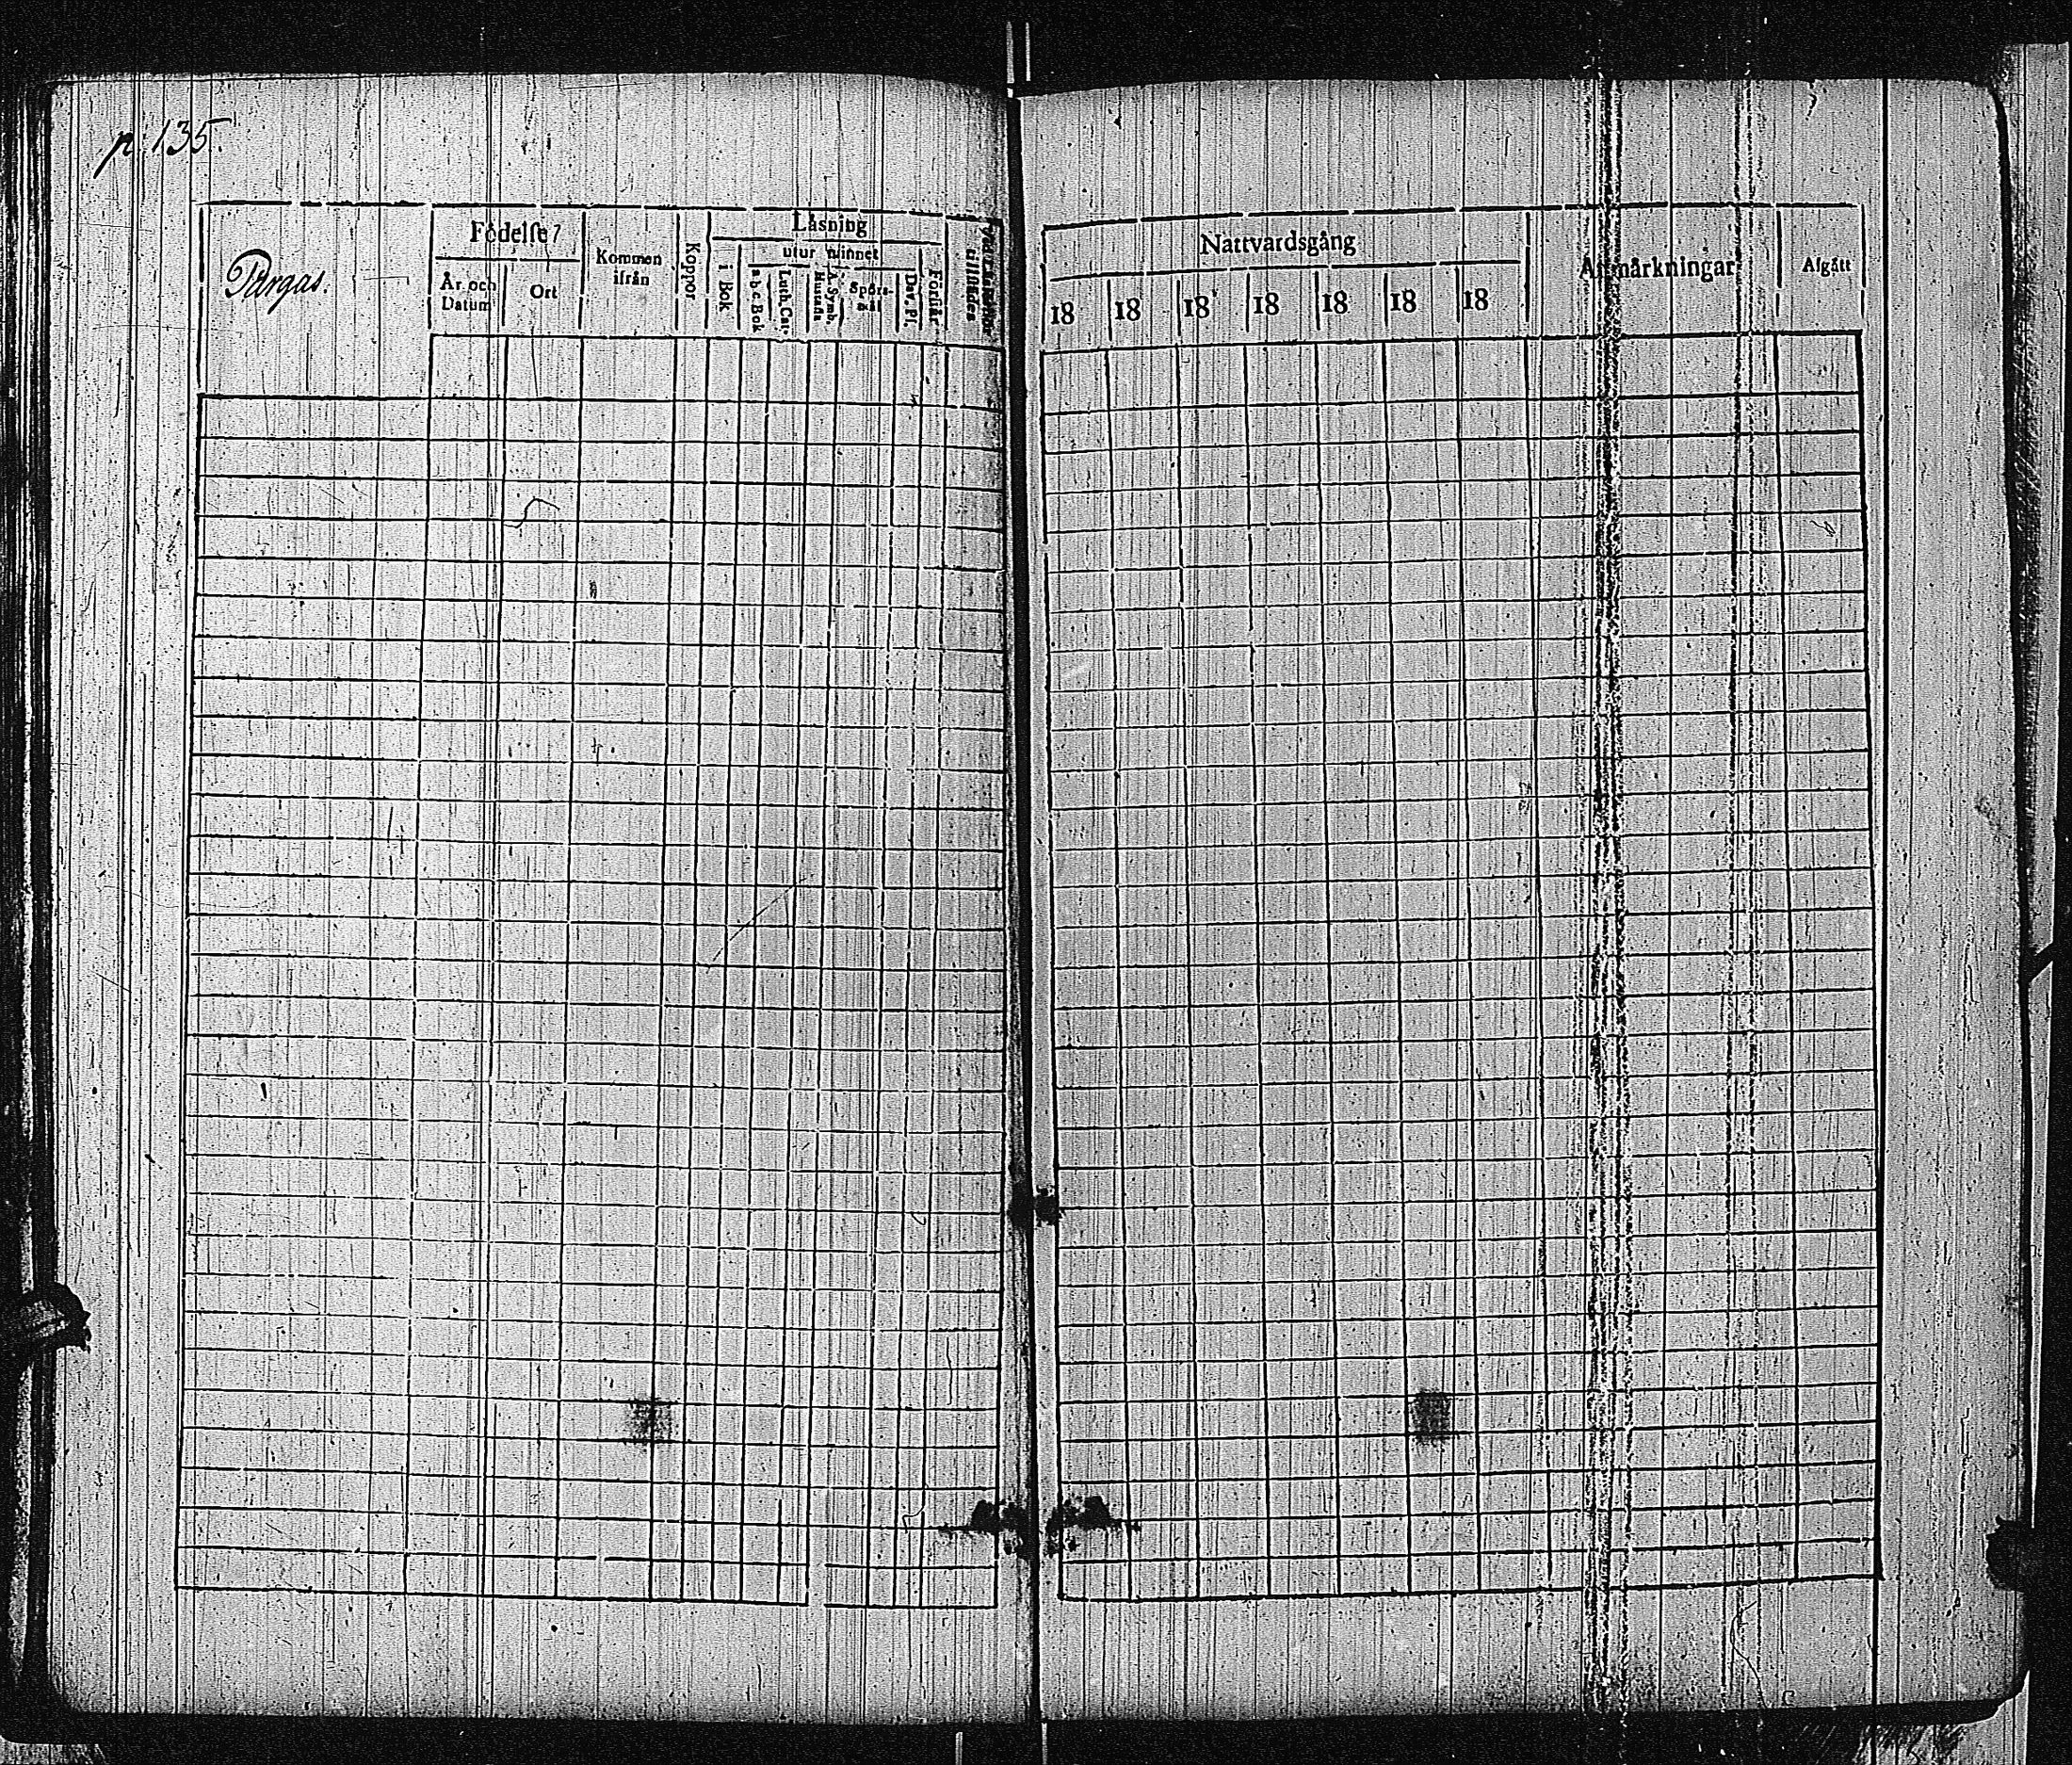 p. 135.
Pargas.
Födelse
År och Datum
Ort
Kommen ifrån
Koppor
Läsning
i Bok
utur minnet
a b c Bok
Luth. Cat.
Hustafla
A. Symb.
Spörsmål
Dav. Ps.
Förstår
tillstädes
Nattvardsgång
18 18 18 18 18 18 18
Anmärkningar
Afgått